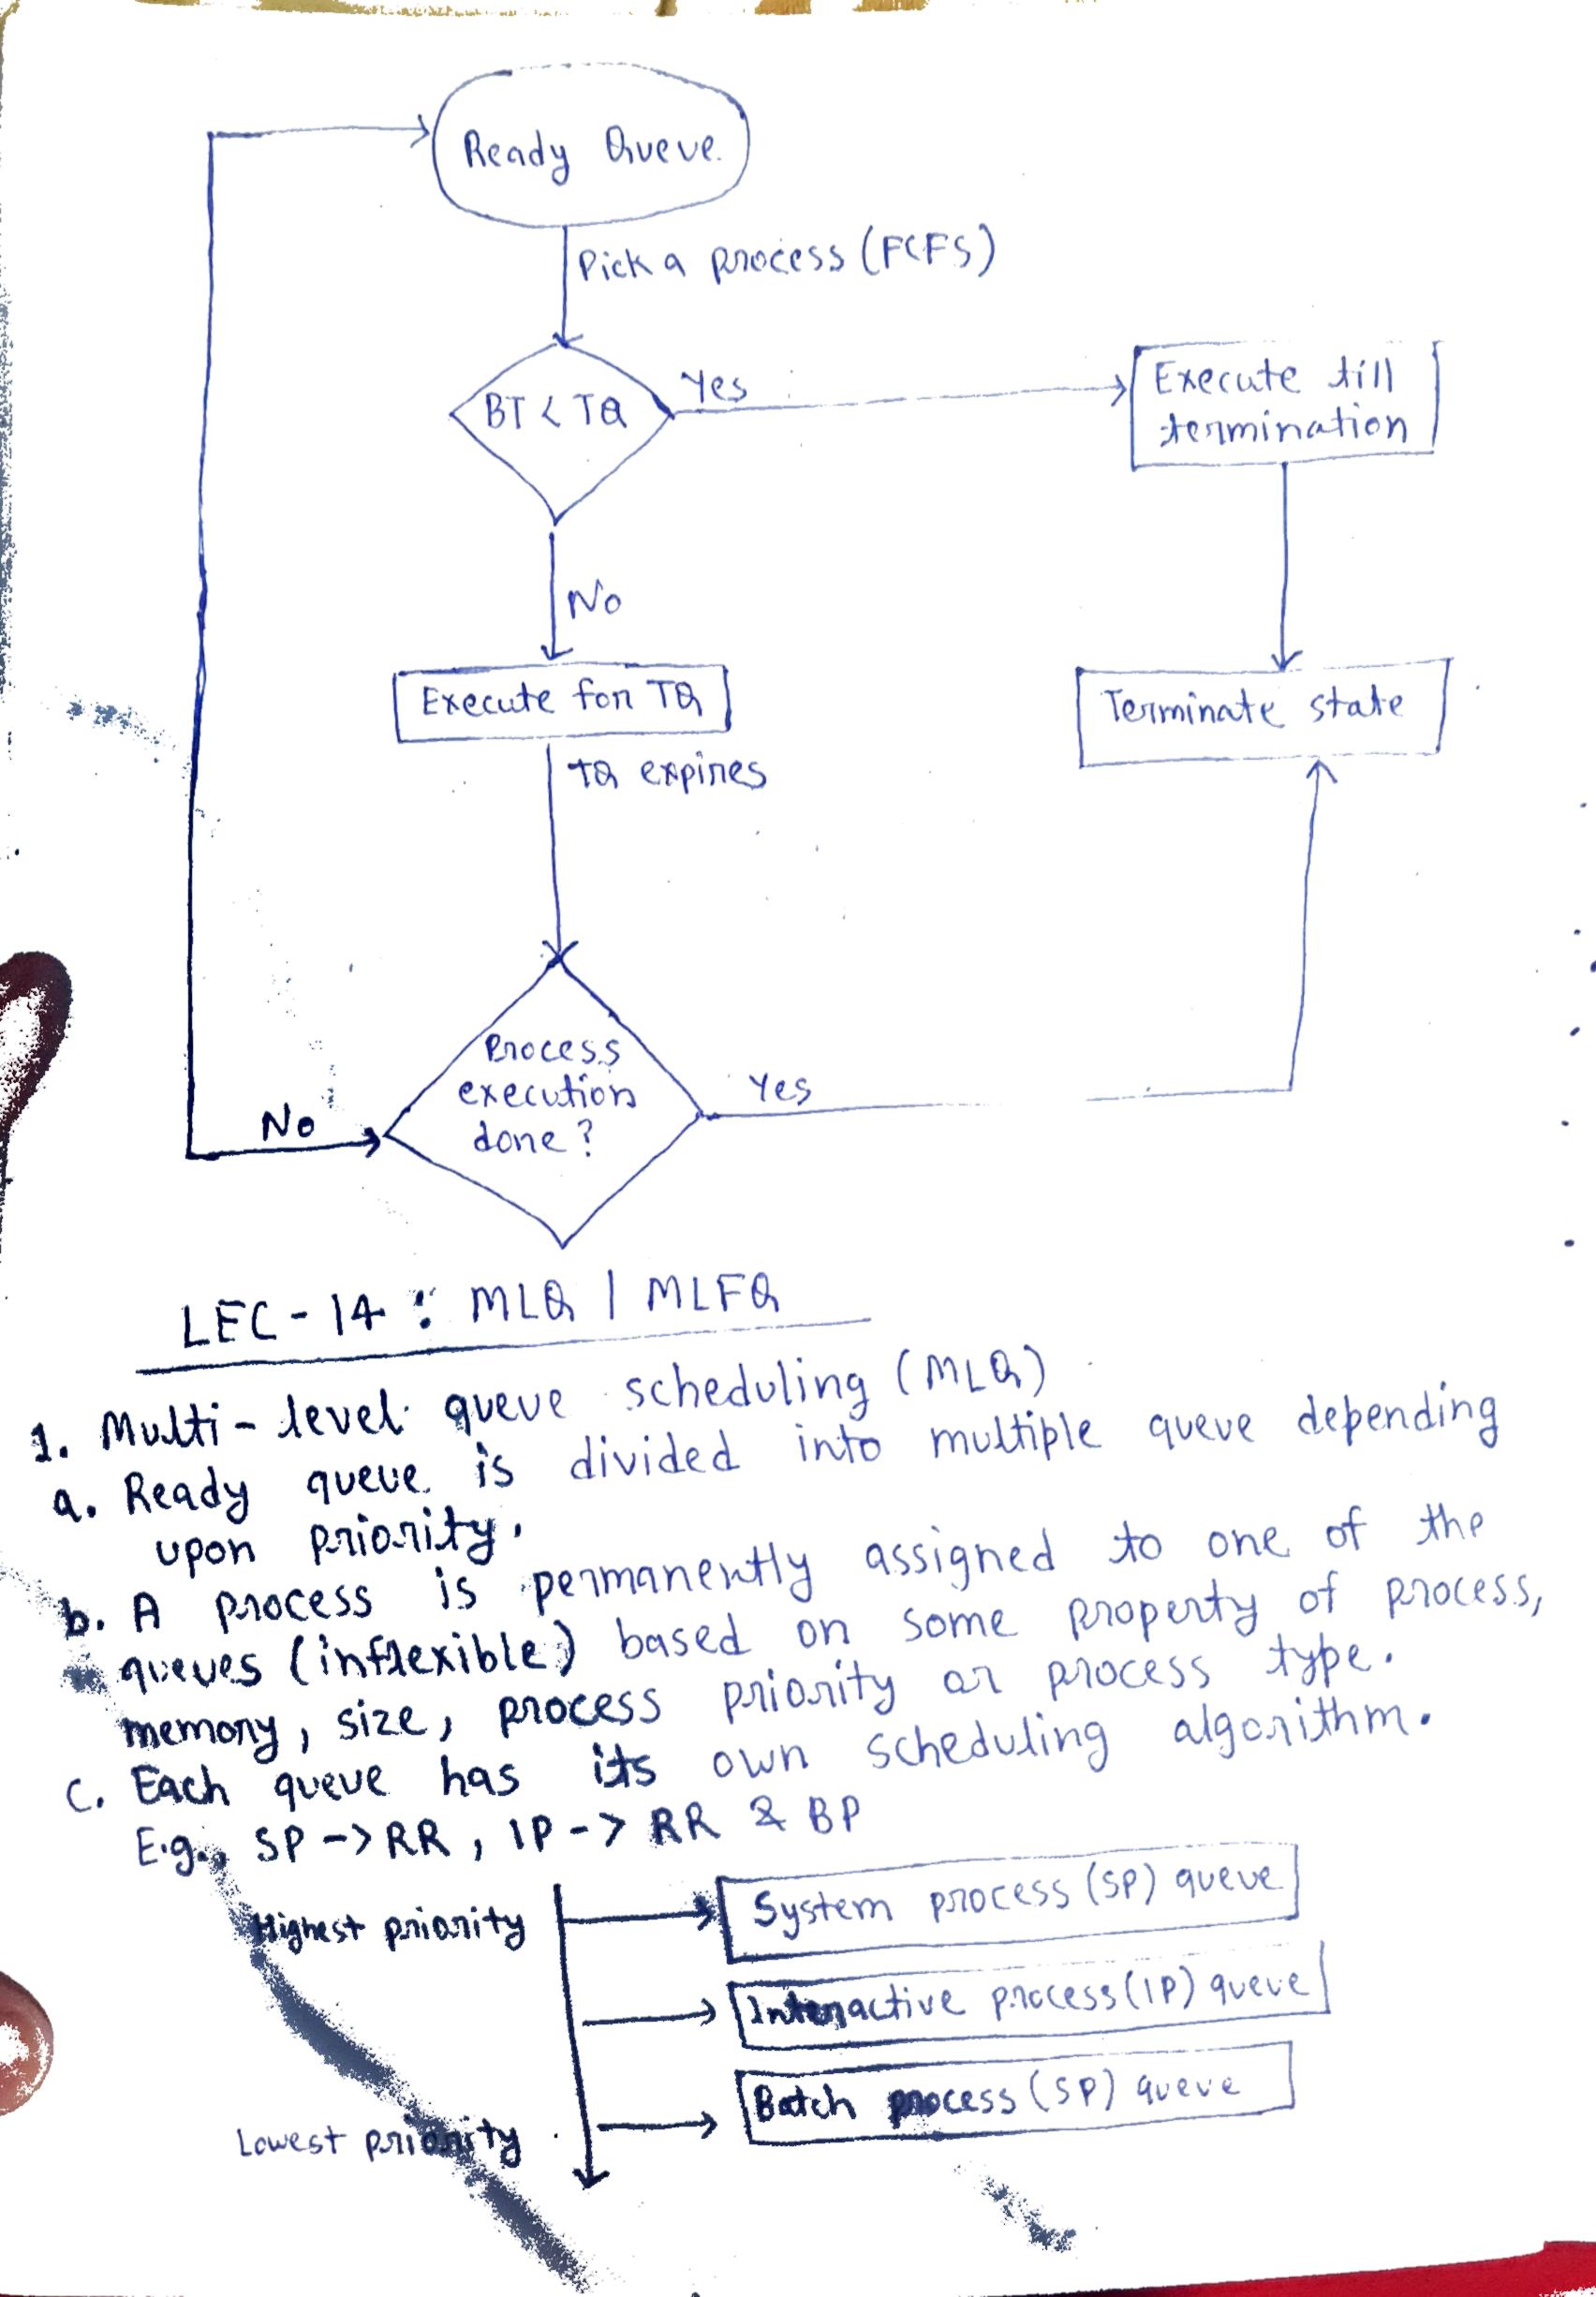 Ready Queue.
Pick a process (FCFS)
BT < TQ
Yes
Execute till
termination
No
Execute for TQ
Terminate state
TQ expires
Process
execution
done?
Yes
No
LEC-14 : MLQ | MLFQ
1. Multi-level queue scheduling (MLQ)
a. Ready queue is divided into multiple queue depending
upon priority.
b. A process is permanently assigned to one of the
queues (inflexible) based on some property of process,
memory, size, process priority or process type.
C. Each queue has its own scheduling algorithm.
E.g., SP -> RR, IP -> RR & BP
Highest priority
System process (SP) queue
Interactive process (IP) queue
Batch process (SP) queue
Lowest priority